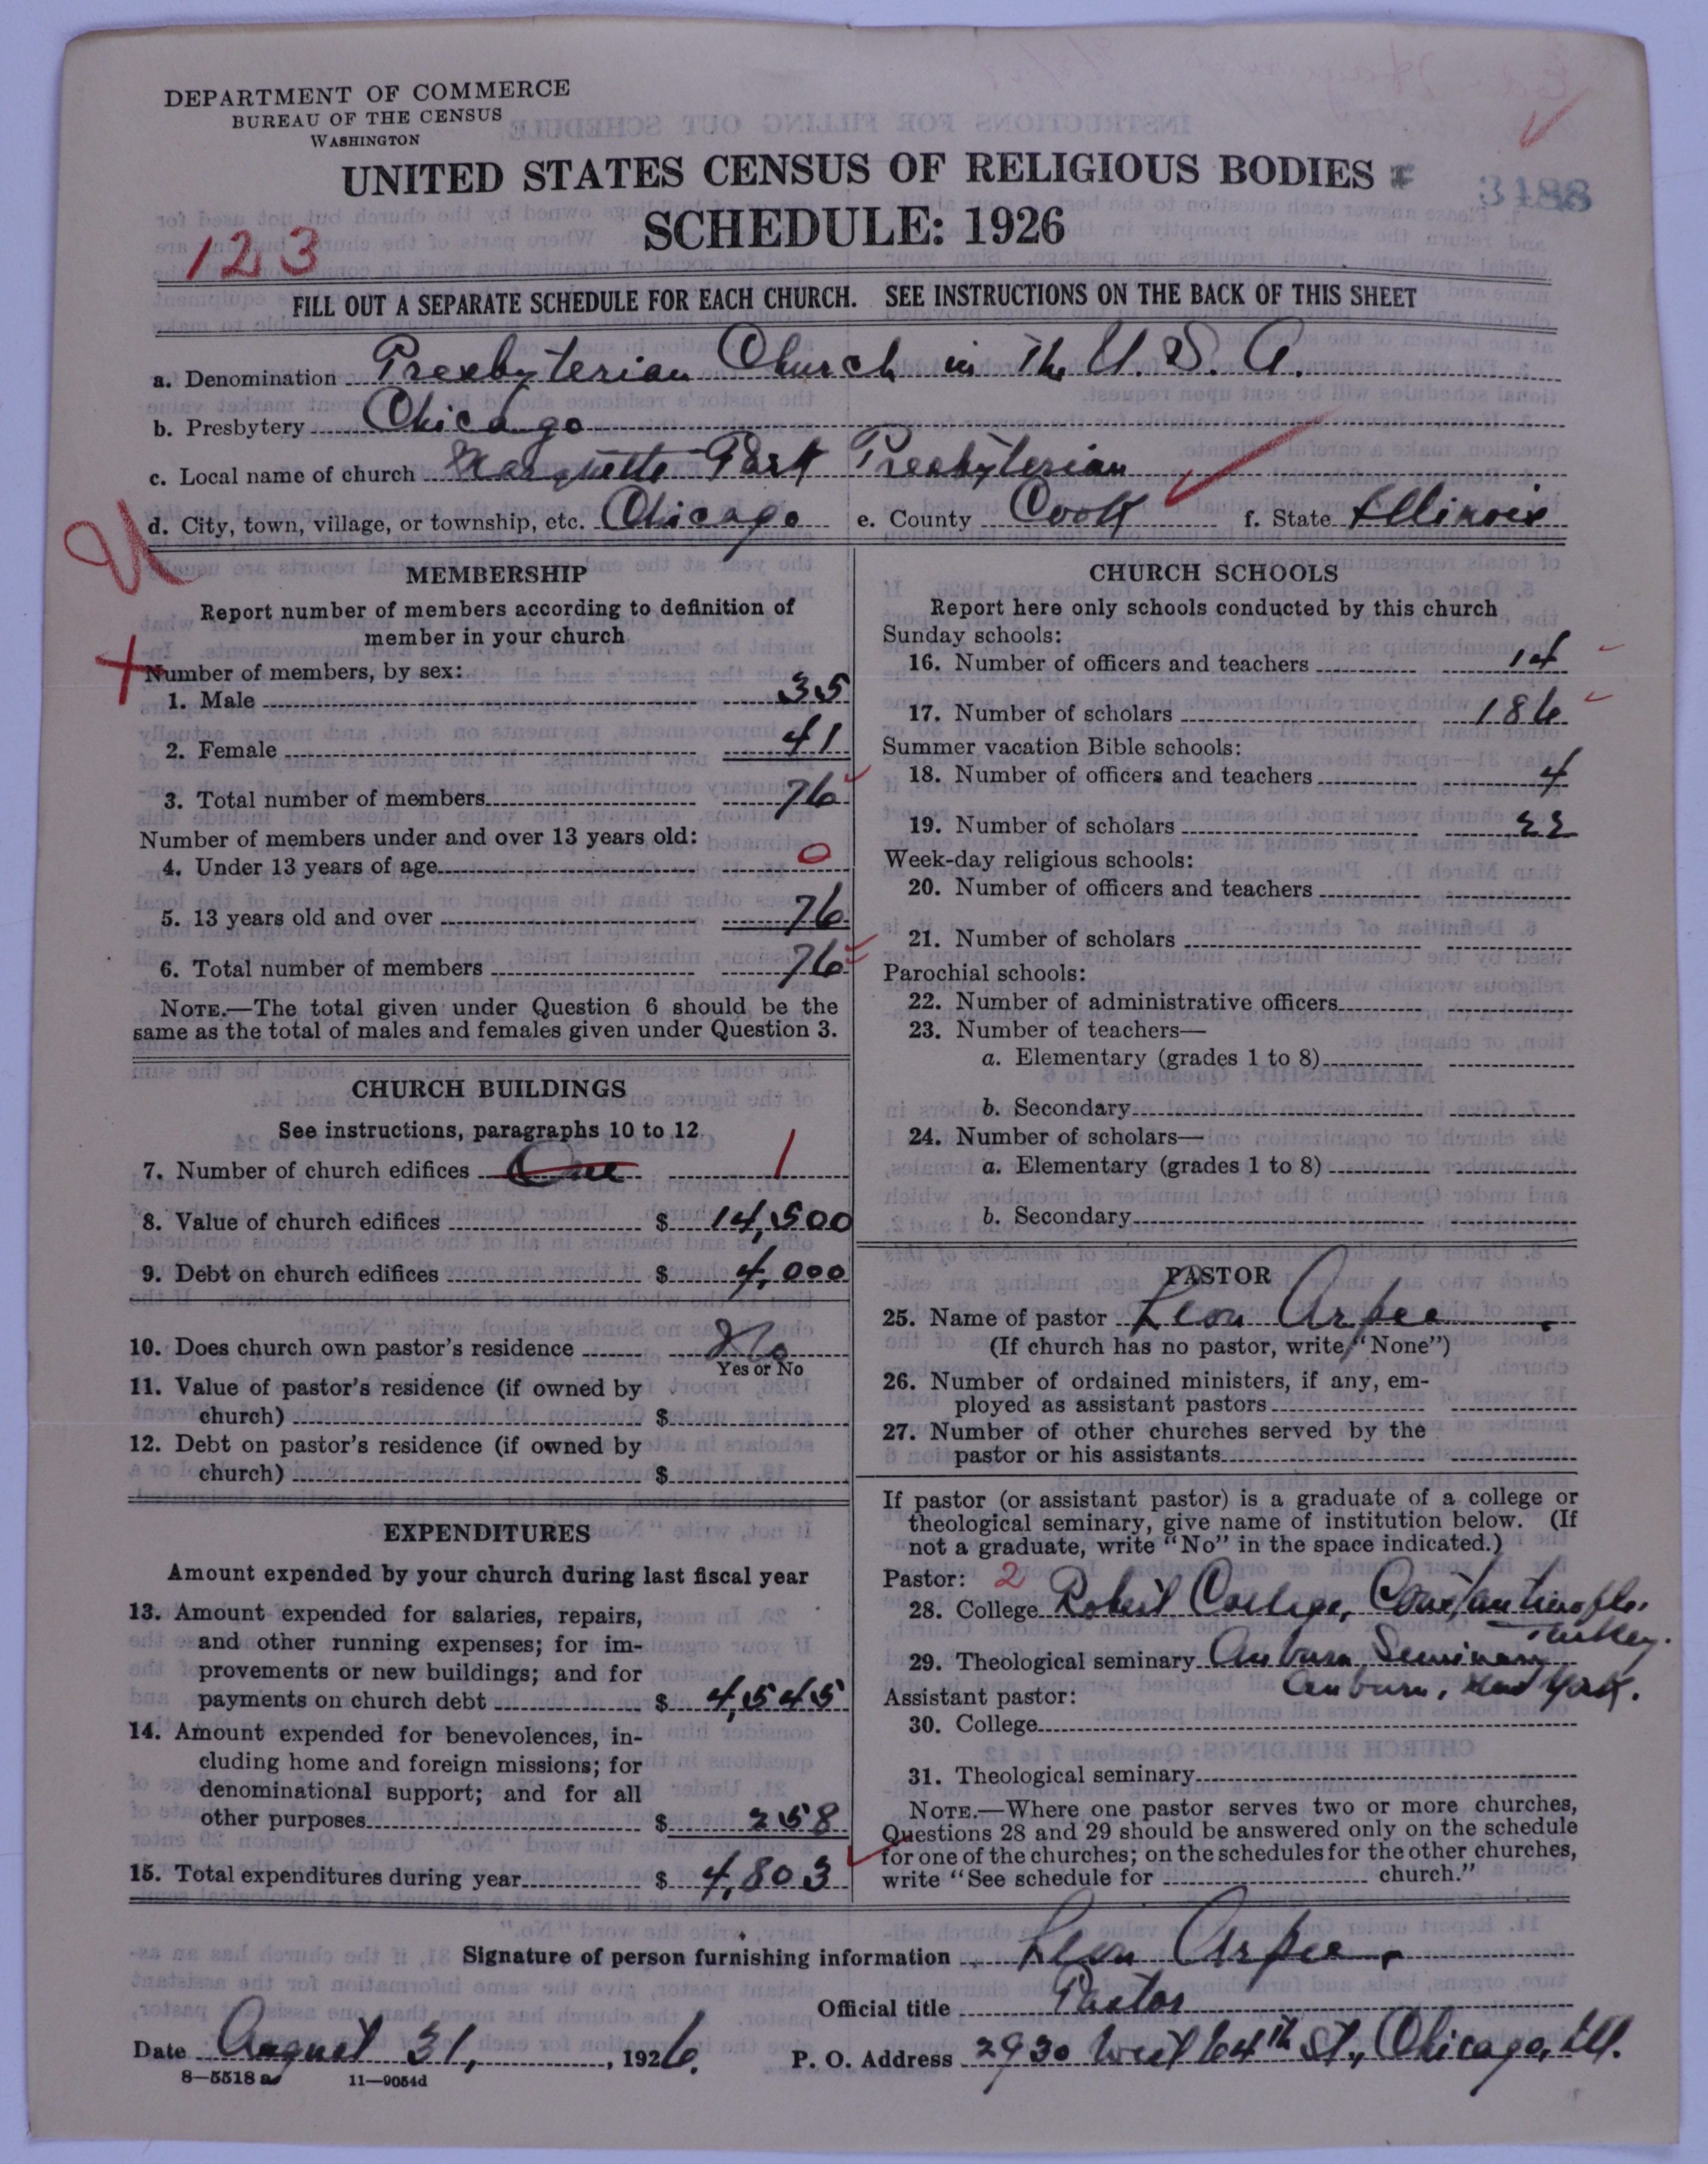 DEPARTMENT OF COMMERCE
BUREAU OF THE CENSUS
WASHINGTON
UNITED STATES CENSUS OF RELIGIOUS BODIES
3188
SCHEDULE: 1926
123
FILL OUT A SEPARATE SCHEDULE FOR EACH CHURCH. SEE INSTRUCTIONS ON THE BACK OF THIS SHEET
a. Denomination Presbyterian Church in The U. S. A.
b. Presbytery Chicago
c. Local name of church Marquette Park Presbyterian
d. City, town, village, or township, etc. Chicago e. County Cook f. State Illinois
MEMBERSHIP
Report number of members according to definition of
member in your church
Number of members, by sex:
1. Male 35
2. Female 41
3. Total number of members 76
Number of members under and over 13 years old:
4. Under 13 years of age 0
5. 13 years old and over 76
6. Total number of members 76
NOTE.—The total given under Question 6 should be the
same as the total of males and females given under Question 3.
CHURCH BUILDINGS
See instructions, paragraphs 10 to 12
7. Number of church edifices One 1
8. Value of church edifices $ 14,500
9. Debt on church edifices $ 4,000
10. Does church own pastor's residence No
Yes or No
11. Value of pastor's residence (if owned by
church) $
12. Debt on pastor's residence (if owned by
church) $
EXPENDITURES
Amount expended by your church during last fiscal year
13. Amount expended for salaries, repairs,
and other running expenses; for im-
provements or new buildings; and for
payments on church debt $ 4,545
14. Amount expended for benevolences, in-
cluding home and foreign missions; for
denominational support; and for all
other purposes $ 258
15. Total expenditures during year $ 4,803
CHURCH SCHOOLS
Report here only schools conducted by this church
Sunday schools:
16. Number of officers and teachers 14
17. Number of scholars 186
Summer vacation Bible schools:
18. Number of officers and teachers 4
19. Number of scholars 22
Week-day religious schools:
20. Number of officers and teachers
21. Number of scholars
Parochial schools:
22. Number of administrative officers
23. Number of teachers—
a. Elementary (grades 1 to 8)
b. Secondary
24. Number of scholars—
a. Elementary (grades 1 to 8)
b. Secondary
PASTOR
25. Name of pastor Leon Arpee
(If church has no pastor, write "None")
26. Number of ordained ministers, if any, em-
ployed as assistant pastors
27. Number of other churches served by the
pastor or his assistants
If pastor (or assistant pastor) is a graduate of a college or
theological seminary, give name of institution below. (If
not a graduate, write "No" in the space indicated.)
Pastor: 2
28. College Robert College, Constantinople,
Turkey.
29. Theological seminary Auburn Seminary
Auburn, New York.
Assistant pastor:
30. College
31. Theological seminary
NOTE.—Where one pastor serves two or more churches,
Questions 28 and 29 should be answered only on the schedule
for one of the churches; on the schedules for the other churches,
write "See schedule for church."
Signature of person furnishing information Leon Arpee,
Official title Pastor
Date August 31, 1926. P. O. Address 2930 West 64th St., Chicago, Ill.
8—5518 a 11—9054d